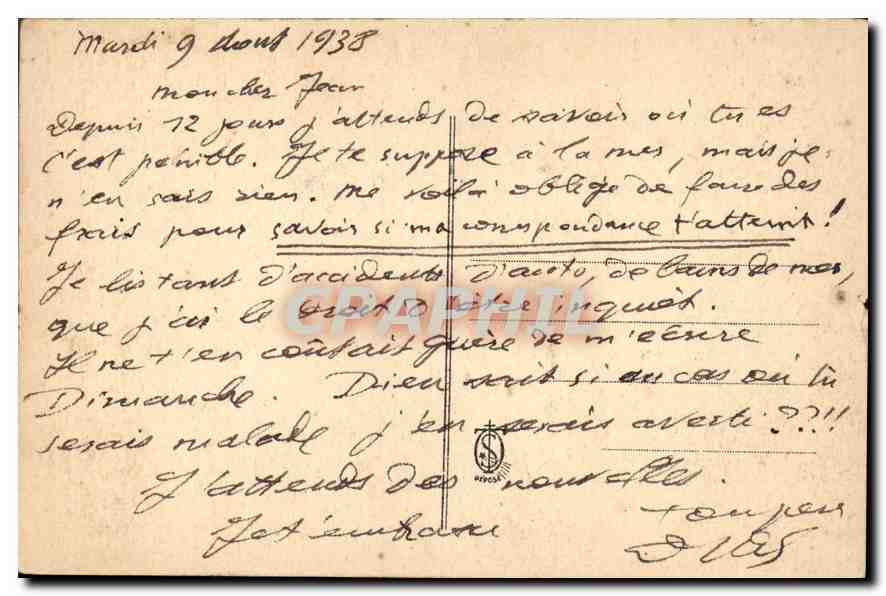 Mardi 9 Aout 1938
mon cher Jean
Depuis 12 jours j'attends de savoir où tu es
c'est pénible. Je te suppose à la mer, mais je
n'en sais rien. Me voilà obligé de faire des
frais pour savoir si ma correspondance t'atteint!
Je lis tant d'accidents d'auto, de bains de mer,
que j'ai le droit d'être inquièt.
CPAPHIL
Il ne t'en coûtait guère de m'écrire
Dimanche. Dieu sait si au cas où tu
serais malade j'en serais averti??!!
DEPOSE
J'attends des nouvelles.
Je t'embrasse
ton père